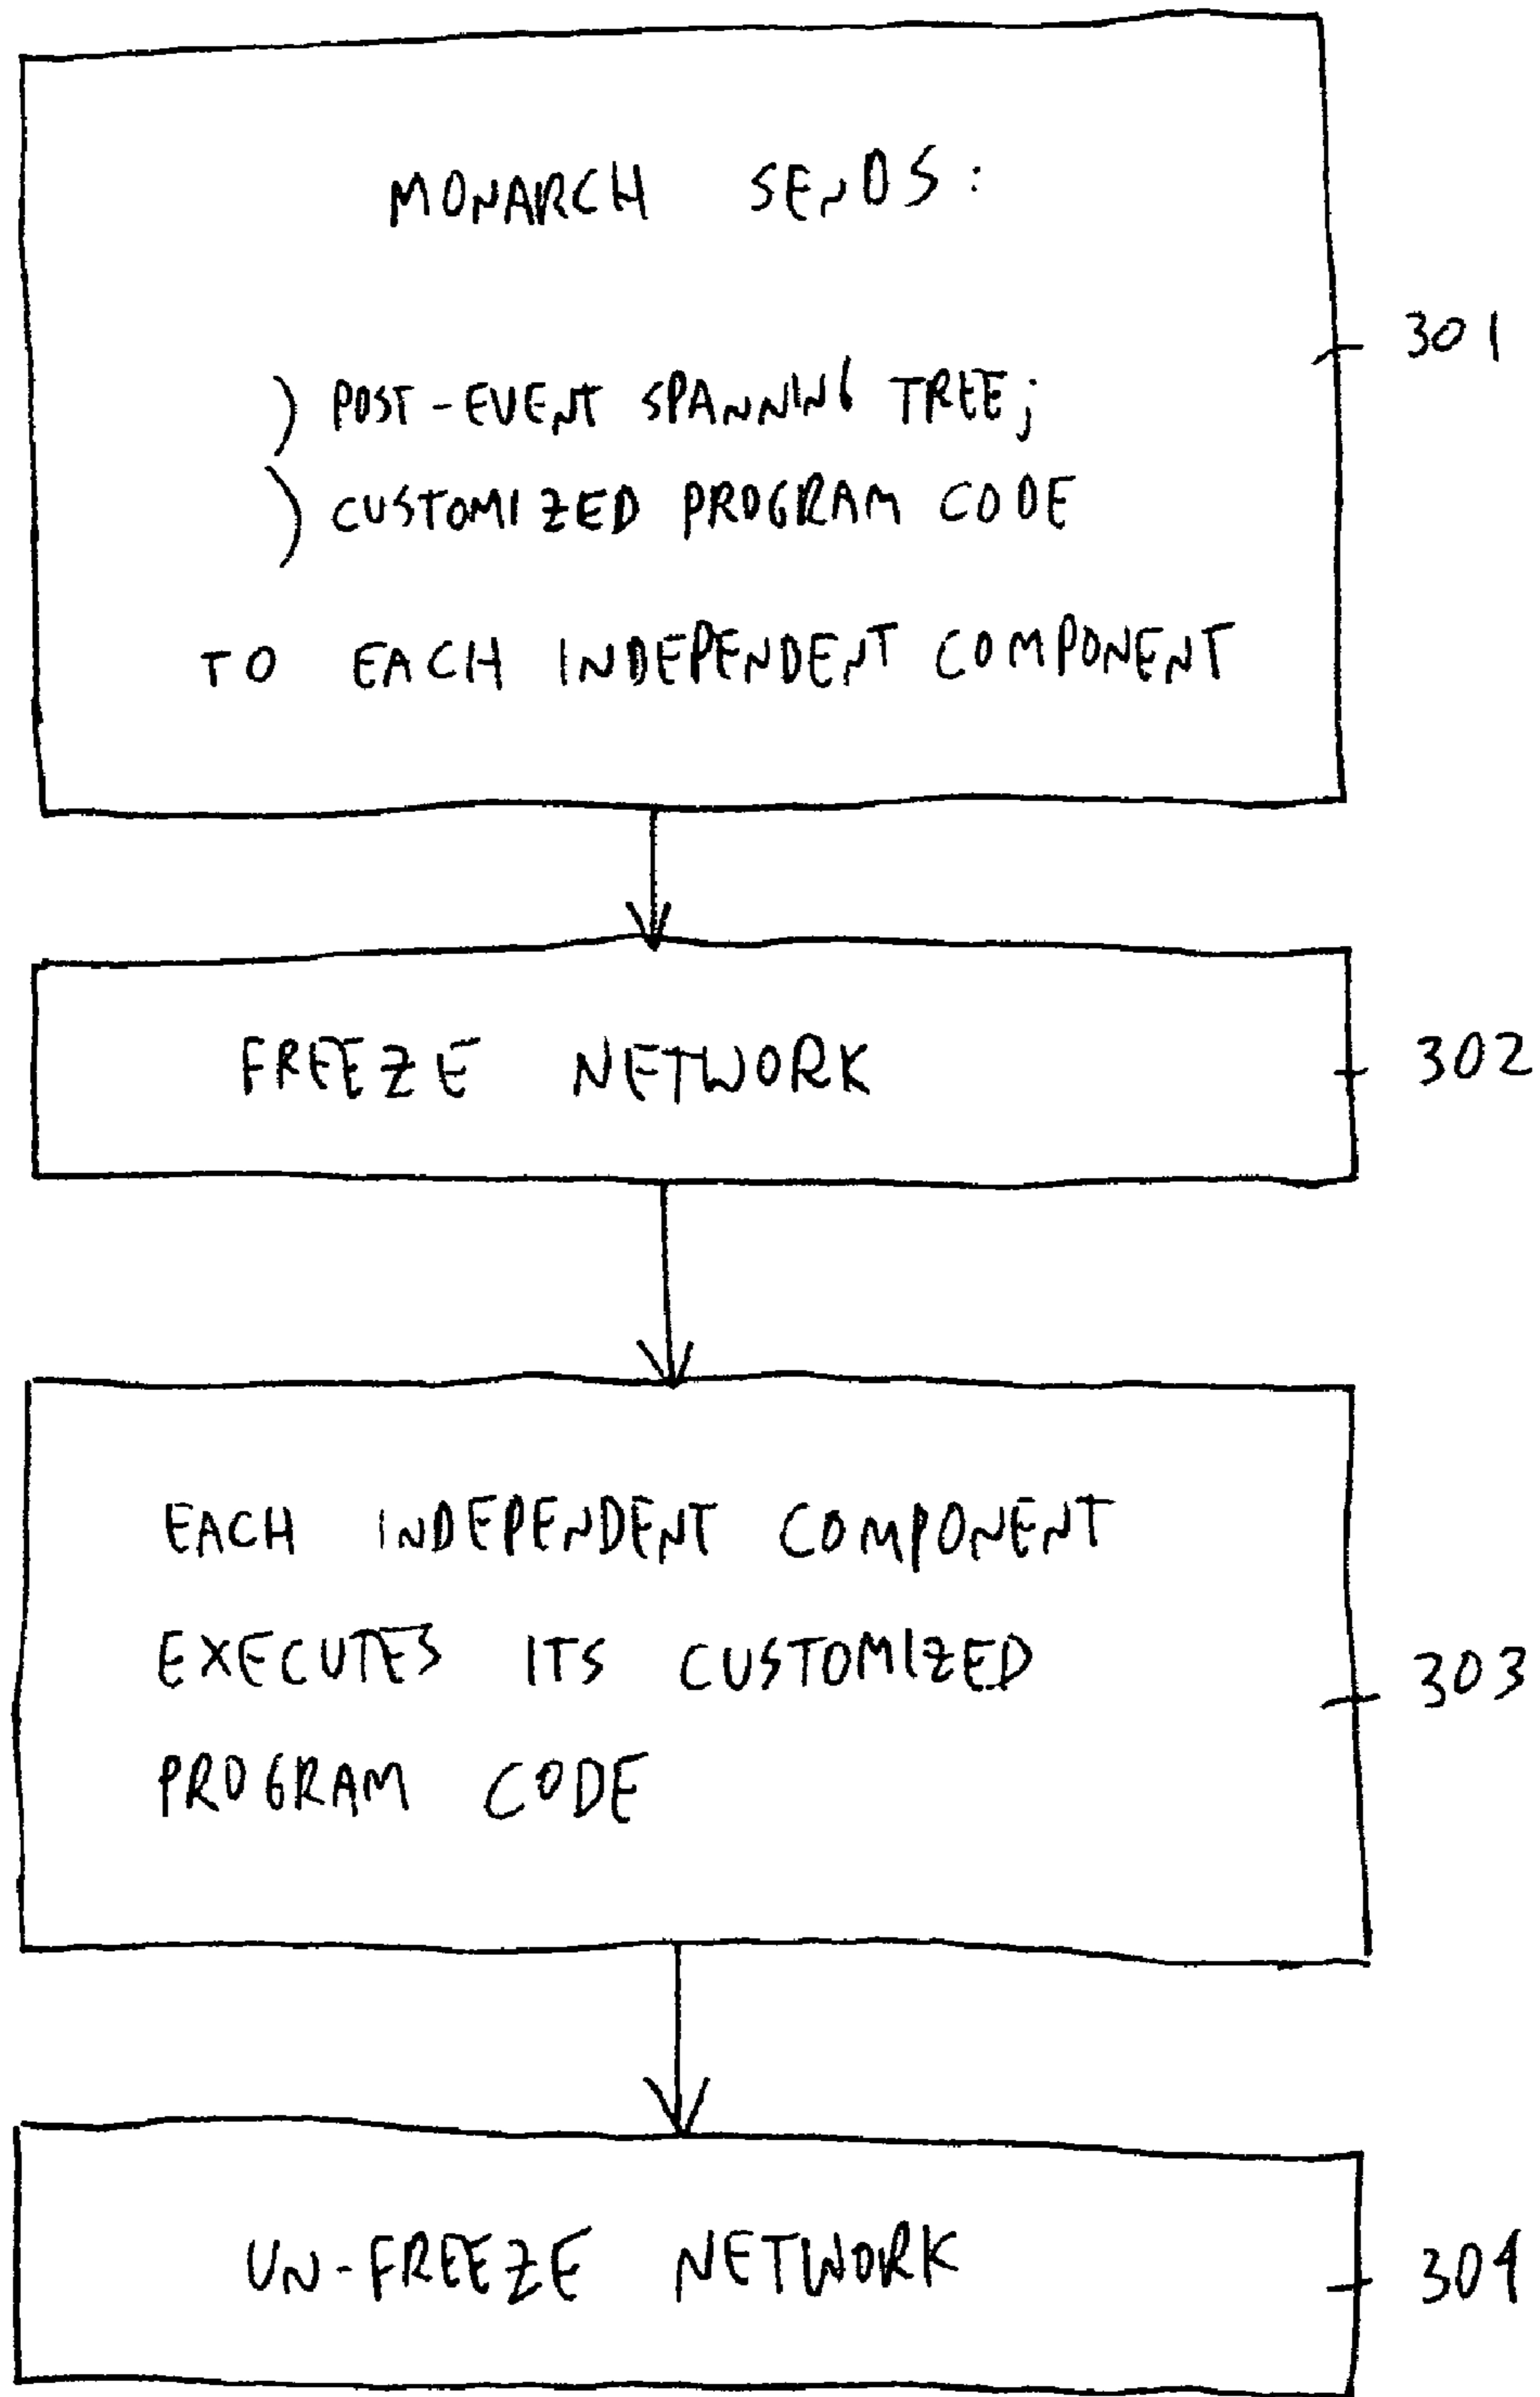 MONARCH SENDS:
301
) POST-EVENT SPANNING TREE;
) CUSTOMIZED PROGRAM CODE
TO EACH INDEPENDENT COMPONENT
FREEZE NETWORK
302
EACH INDEPENDENT COMPONENT
EXECUTES ITS CUSTOMIZED
303
PROGRAM CODE
UN-FREEZE NETWORK
304